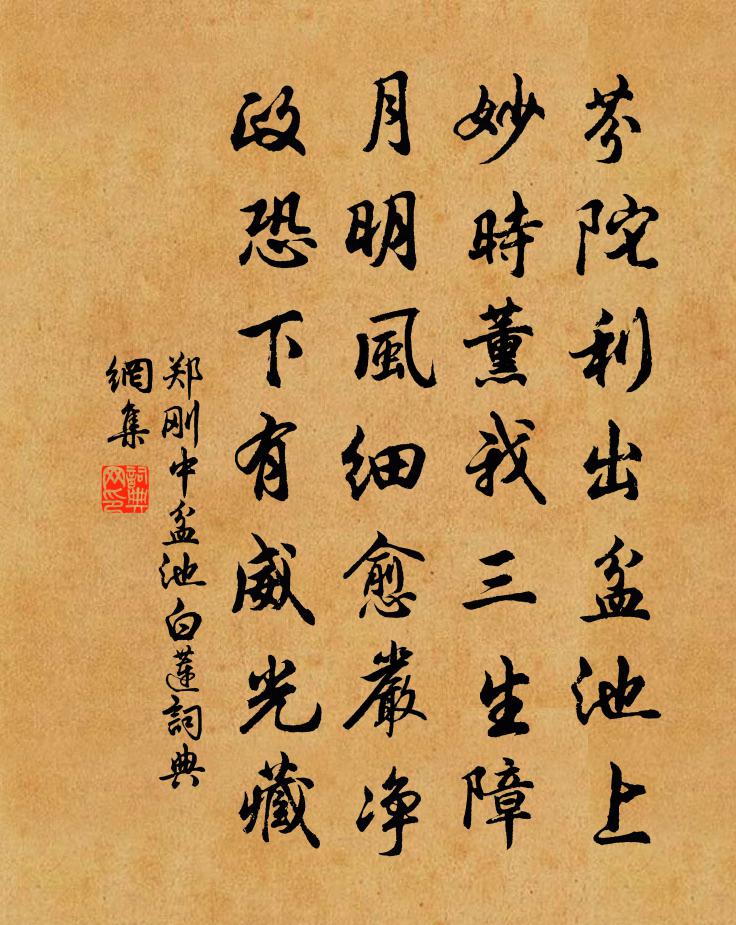 芬陀利出盆池上
妙時薰我三生障
月明風細愈嚴净
政恐下有威光藏
郑刚中盆池白蓮詞典
網集
詞典
网印